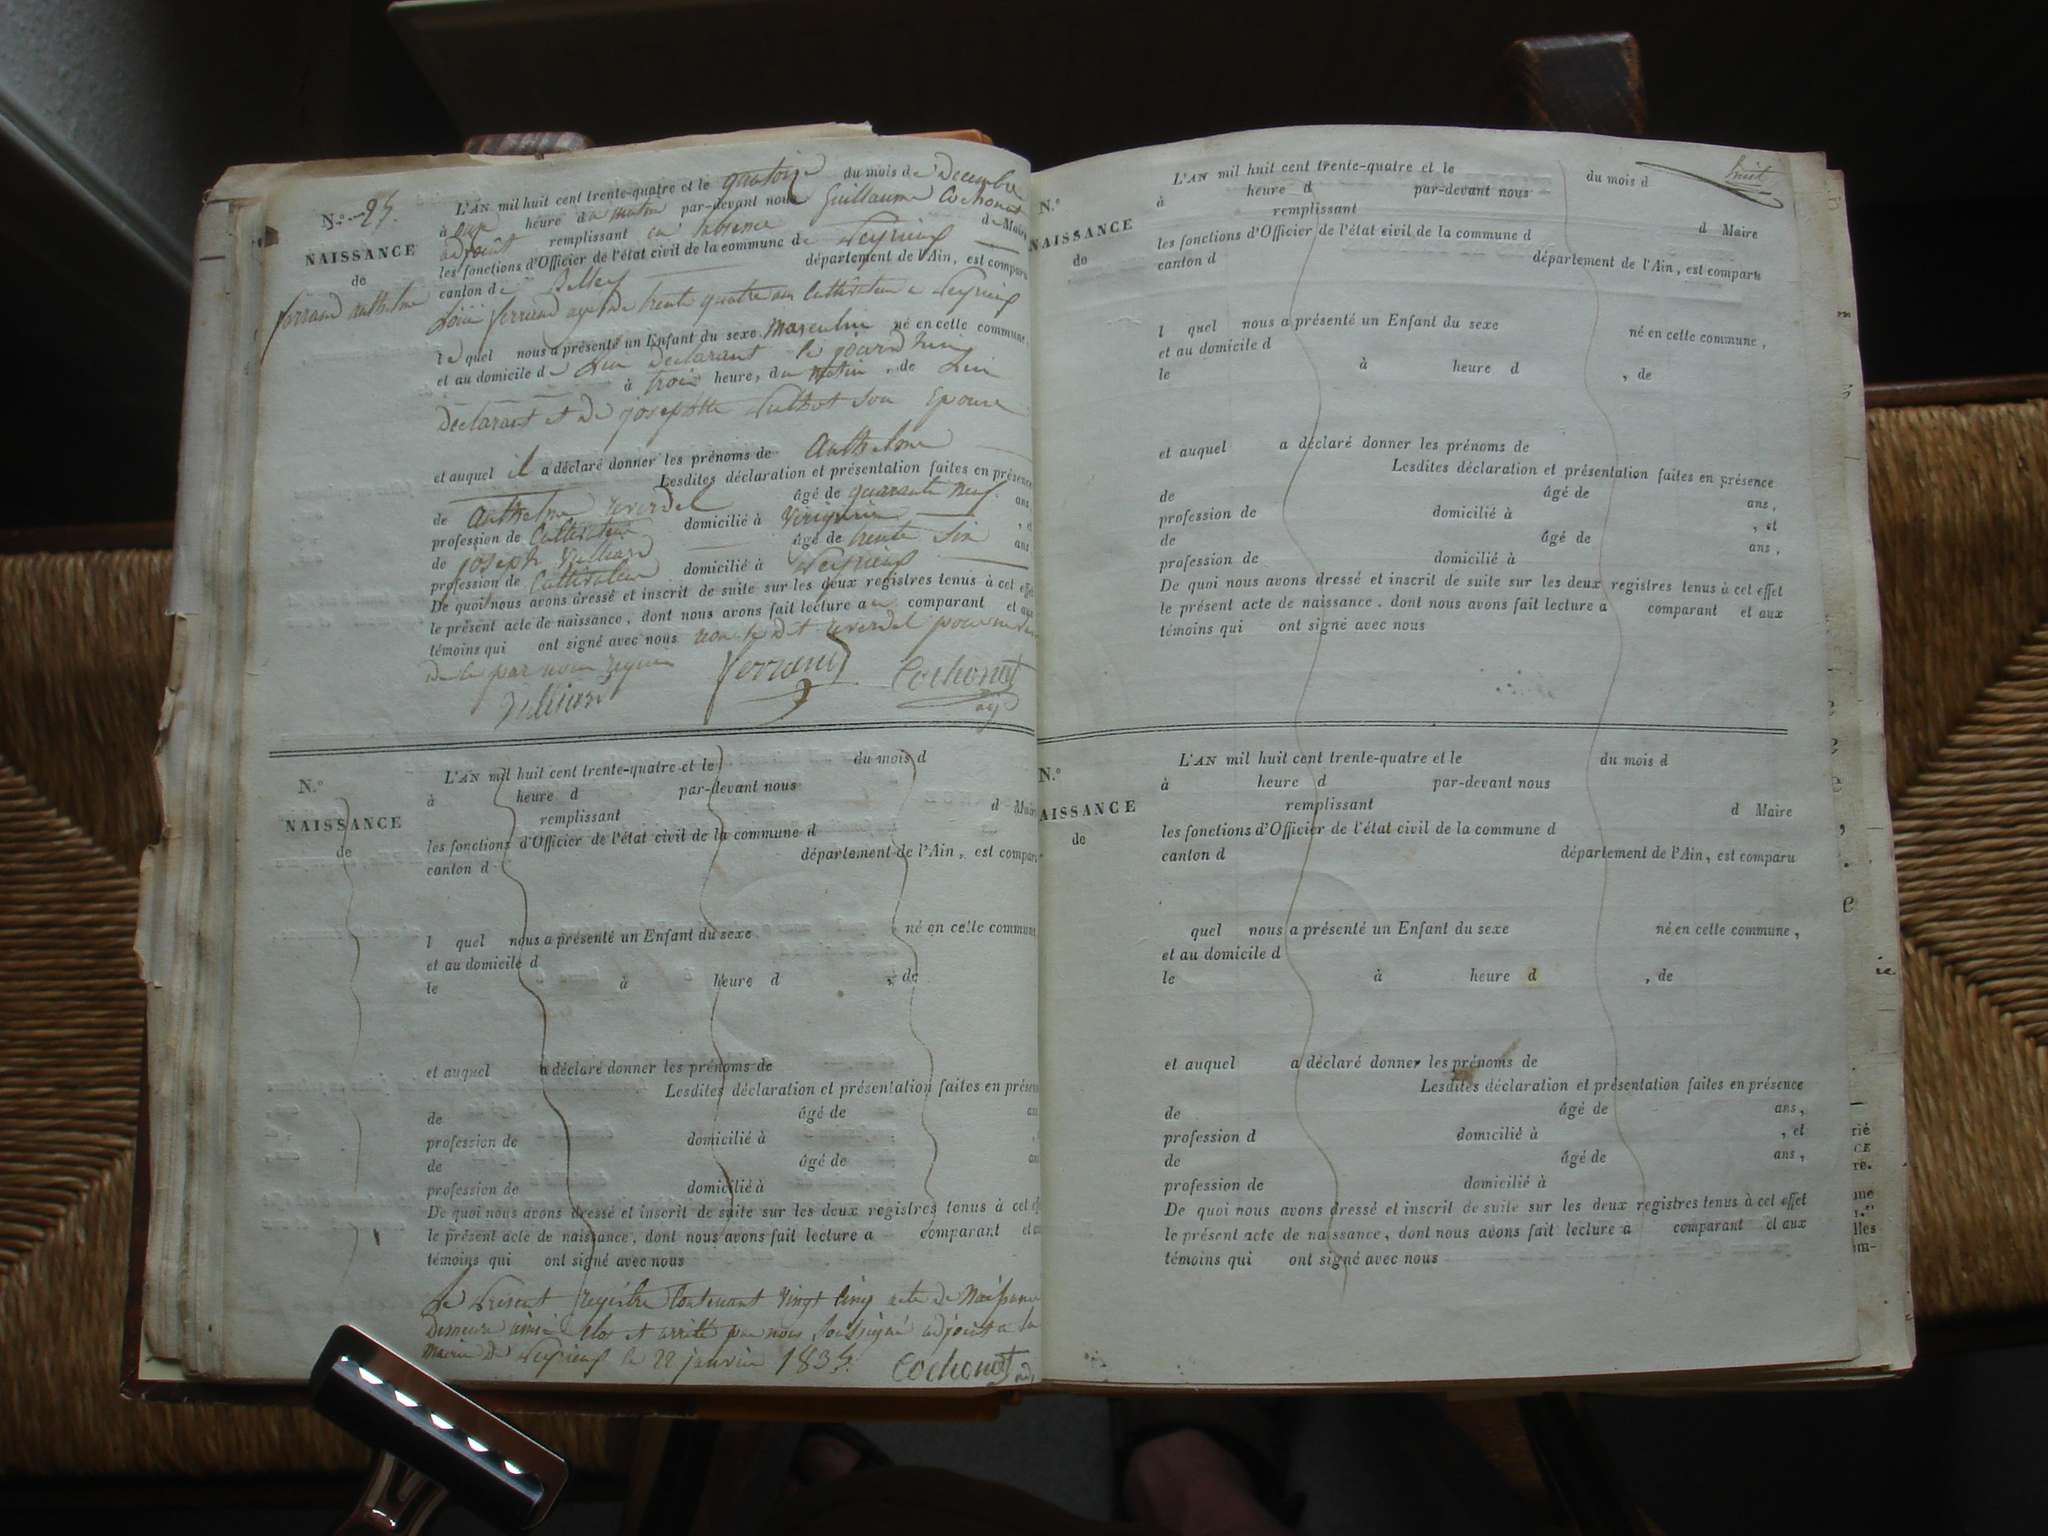 N.º 25.
NAISSANCE
de
ferrand anthelme
L'AN mil huit cent trente-quatre et le quatorze du mois de Decembre
à onze heure du matin par-devant nous Guillaume Cochonat
adjoint remplissant en l'absence de Maire
les fonctions d'Officier de l'état civil de la commune de Peyrieux
canton de Belley département de l'Ain, est comparu
ferrand agé de trente quatre ans Cultivateur a Peyrieux
lequel nous a présenté un Enfant du sexe masculin né en cette commune,
et au domicile de lui declarant le jourd'hui
à trois heure, du matin, de Lui
declarant et de josephte son Epouse
et auquel il a déclaré donner les prénoms de Anthelme
Lesdites déclaration et présentation faites en présence
de Anthelme âgé de quarante neuf ans,
profession de Cultivateur domicilié à , et
de joseph âgé de trente six ans
profession de Cultivateur domicilié à Peyrieux
De quoi nous avons dressé et inscrit de suite sur les deux registres tenus à cet effet
le présent acte de naissance, dont nous avons fait lecture au comparant et aux
témoins qui ont signé avec nous non le dit pour ne
de le par nous requis
ferrand Cochonat
adj
N.º
NAISSANCE
de
L'AN mil huit cent trente-quatre et le du mois d
à heure d par-devant nous
remplissant d Maire
les fonctions d'Officier de l'état civil de la commune d
canton d département de l'Ain, est comparu
l quel nous a présenté un Enfant du sexe né en cette commune,
et au domicile d
le à heure d , de
et auquel a déclaré donner les prénoms de
Lesdites déclaration et présentation faites en présen
de âgé de an
profession de domicilié à
de âgé de an
profession de domicilié à
De quoi nous avons dressé et inscrit de suite sur les deux registres tenus à cet ef
le présent acte de naissance, dont nous avons fait lecture a comparant et au
témoins qui ont signé avec nous
Le Present registre Contenant vingt Cinq acte de Naissance
Demeure ainsi Clos et arrêté par nous Soussigné adjoint a la
Mairie de Peyrieux le 22 janvier 1835.
Cochonat adj
huit
N.º
NAISSANCE
de
L'AN mil huit cent trente-quatre et le du mois d
à heure d par-devant nous
remplissant d Maire
les fonctions d'Officier de l'état civil de la commune d
canton d département de l'Ain, est comparu
l quel nous a présenté un Enfant du sexe né en cette commune,
et au domicile d
le à heure d , de
et auquel a déclaré donner les prénoms de
Lesdites déclaration et présentation faites en présence
de âgé de ans,
profession de domicilié à , et
de âgé de ans,
profession de domicilié à
De quoi nous avons dressé et inscrit de suite sur les deux registres tenus à cet effet
le présent acte de naissance, dont nous avons fait lecture a comparant et aux
témoins qui ont signé avec nous
N.º
AISSANCE
de
L'AN mil huit cent trente-quatre et le du mois d
à heure d par-devant nous
remplissant d Maire
les fonctions d'Officier de l'état civil de la commune d
canton d département de l'Ain, est comparu
quel nous a présenté un Enfant du sexe né en cette commune,
et au domicile d
le à heure d , de
et auquel a déclaré donner les prénoms de
Lesdites déclaration et présentation faites en présence
de âgé de ans,
profession d domicilié à , et
de âgé de ans,
profession de domicilié à
De quoi nous avons dressé et inscrit de suite sur les deux registres tenus à cet effet
le présent acte de naissance, dont nous avons fait lecture a comparant et aux
témoins qui ont signé avec nous